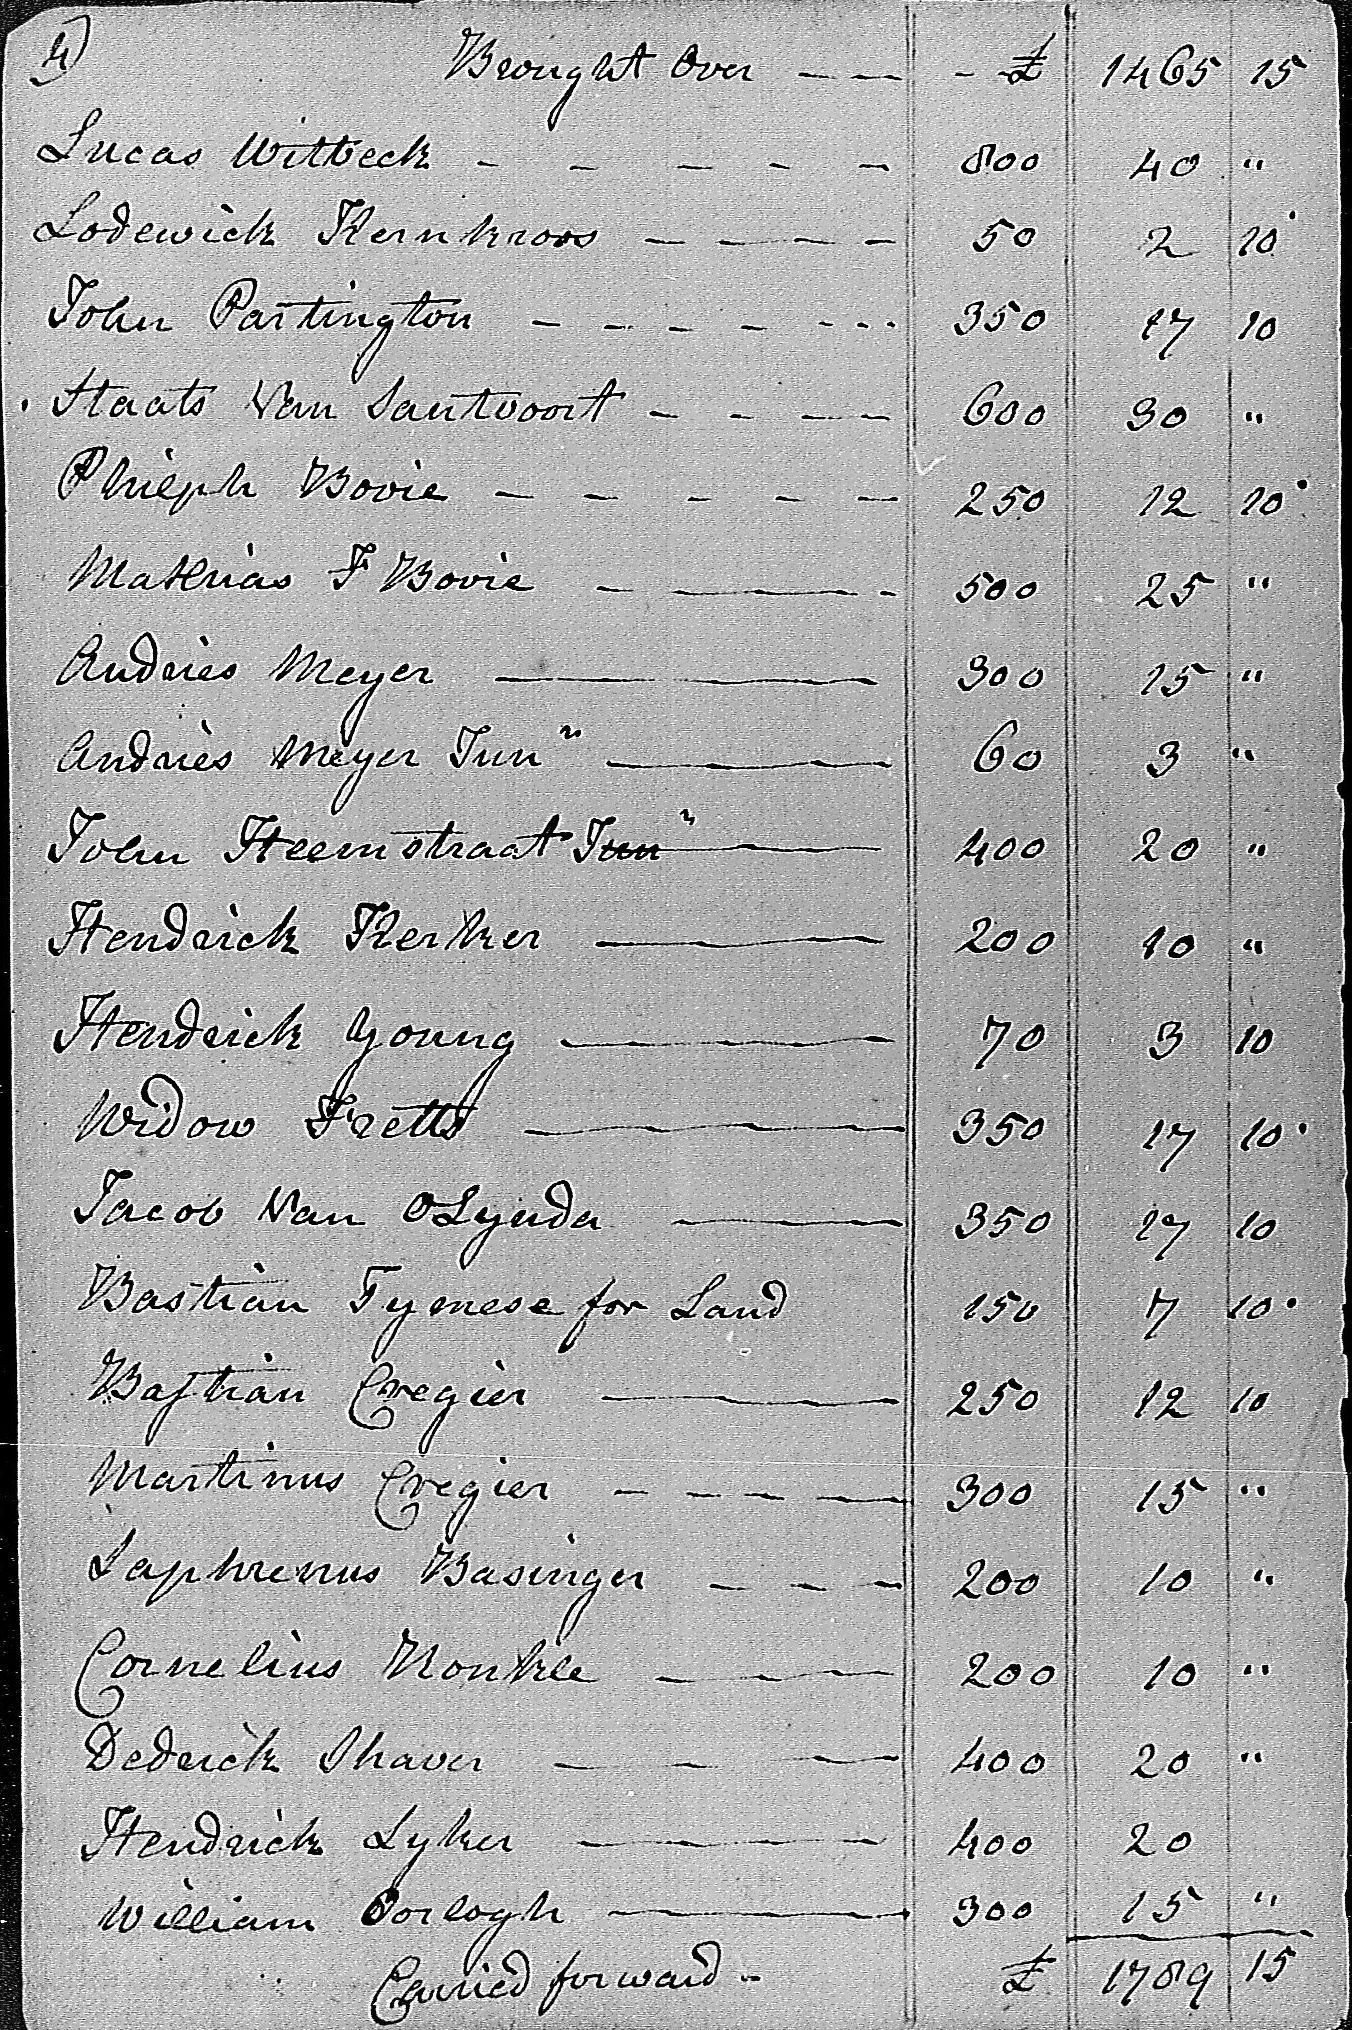 4)
Brought Over - - - - £ 1465 15
Lucas Witbeck - - - - - 800 40 "
Lodewick Kernkroos - - - - 50 2 10
John Partington - - - - - - - 350 17 10
Staats Van Santvoort - - - - 600 30 "
Philiph Bovie - - - - - 250 12 10
Mathias F Bovie - - - - 500 25 "
Andries Meyer - 300 15 "
Andries Meyer Junr - 60 3 "
John Heemstraat Junr - 400 20 "
Hendrick Kerker - 200 10 "
Hendrick Young - 70 3 10
Widow Fretts - 350 17 10
Jacob Van OLynda - 350 17 10
Bastian Tymese for Land 150 7 10
Bastian Cregier - 250 12 10
Martinus Cregier - - - - 300 15 "
Saphrenus Basinger - - - 200 10 "
Cornelius Ronkle - - - 200 10 "
Dedrick Shaver - - - 400 20 "
Hendrick Lyker - - - 400 20
William Oorlogh - 300 15 "
Carried forward - £ 1789 15